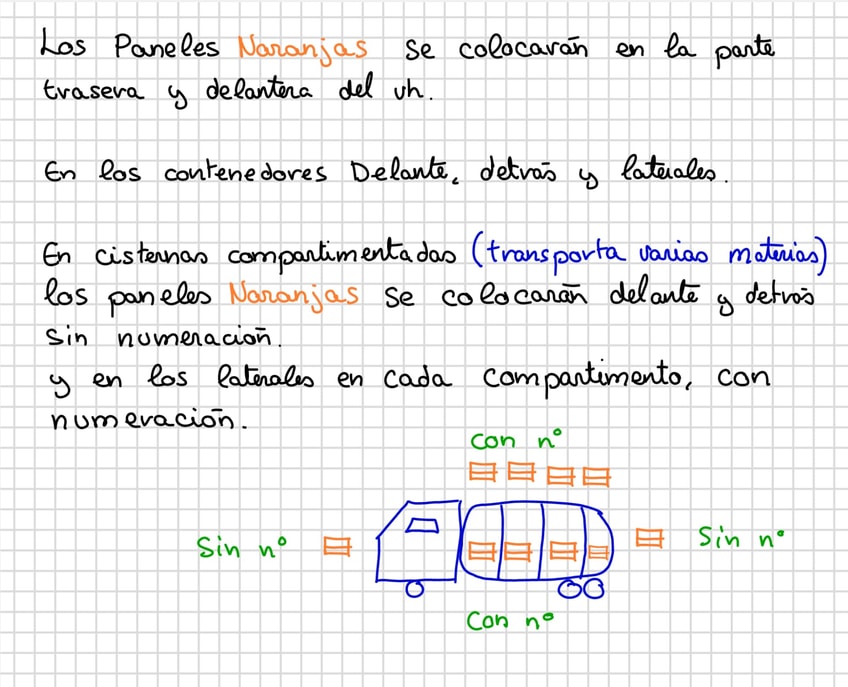 Los Paneles Naranjas se colocarán en la parte
trasera y delantera del vh.
En los contenedores Delante, detrás y laterales.
En cisternas compartimentadas (transporta varias materias)
los paneles Naranjas se colocarán delante y detrás
sin numeración.
y en los laterales en cada compartimento, con
numeración.
con nº
Sin nº
Sin nº
Con nº